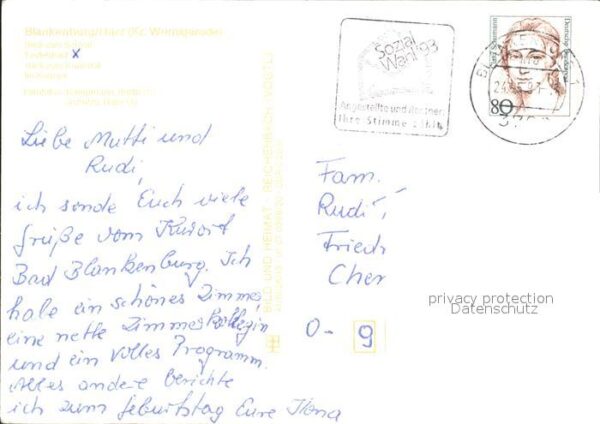 Blankenburg/Harz (Kr. Wernigerode)
x
Sozial
Wahl '93
Angestellte und Rentner:
Ihre Stimme zählt
Deutsche Bundespost
80
Liebe Mutti und
Rudi,
ich sende Euch viele
Grüße vom Kurort
Bad Blankenburg. Ich
habe ein schönes Zimmer,
eine nette Zimmerkollegin
und ein volles Programm.
Alles andere berichte
ich zum Geburtstag Eure Ilona
BILD UND HEIMAT · REICHENBACH (VOGTL)
Fam.
Rudi
Friedr
Cher
O-9
privacy protection
Datenschutz